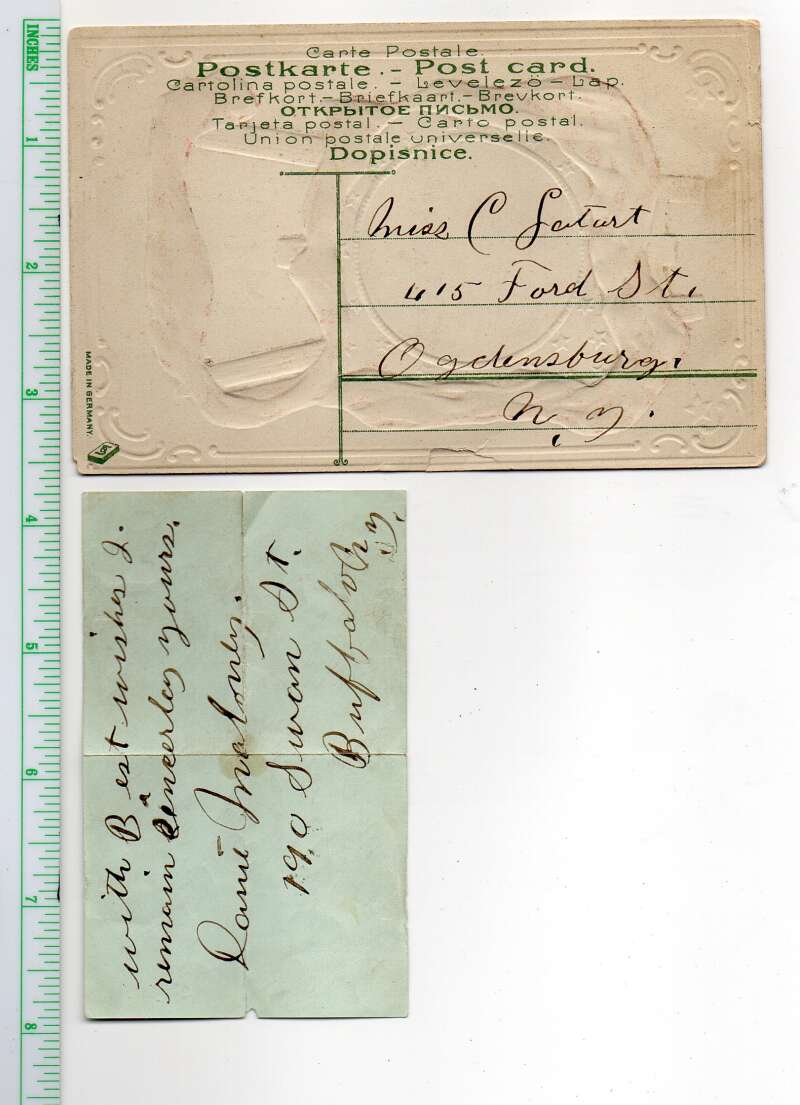 INCHES
1
2
3
4
5
6
7
8
Carte Postale.
Postkarte. - Post card.
Cartolina postale. - Levelezö - Lap.
Brefkort. - Briefkaart. - Brevkort.
ОТКРЫТОЕ ПИСЬМО.
Tarjeta postal. - Carto postal.
Union postale universelle.
Dopisnice.
Miss C
415 Ford St.
Ogdensburg.
N. Y.
MADE IN GERMANY.
with Best wishes I.
remain Sencerley yours.
Maloney.
190 Swan St.
Buffalo N.Y.